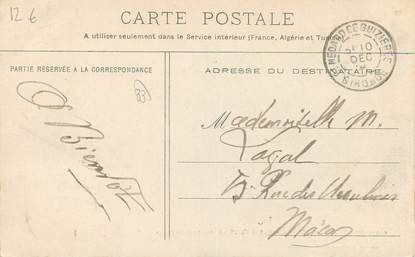 12 €
CARTE POSTALE
A utiliser seulement dans le Service intérieur (France, Algérie et Tunisie)
PARTIE RÉSERVÉE A LA CORRESPONDANCE
ADRESSE DU DESTINATAIRE
MEDARD DE GUIZIÈRES
10
DEC
GIRONDE
A
Bientôt
Mademoiselle M.
Lagal
Rue des Ursulines
Mâcon